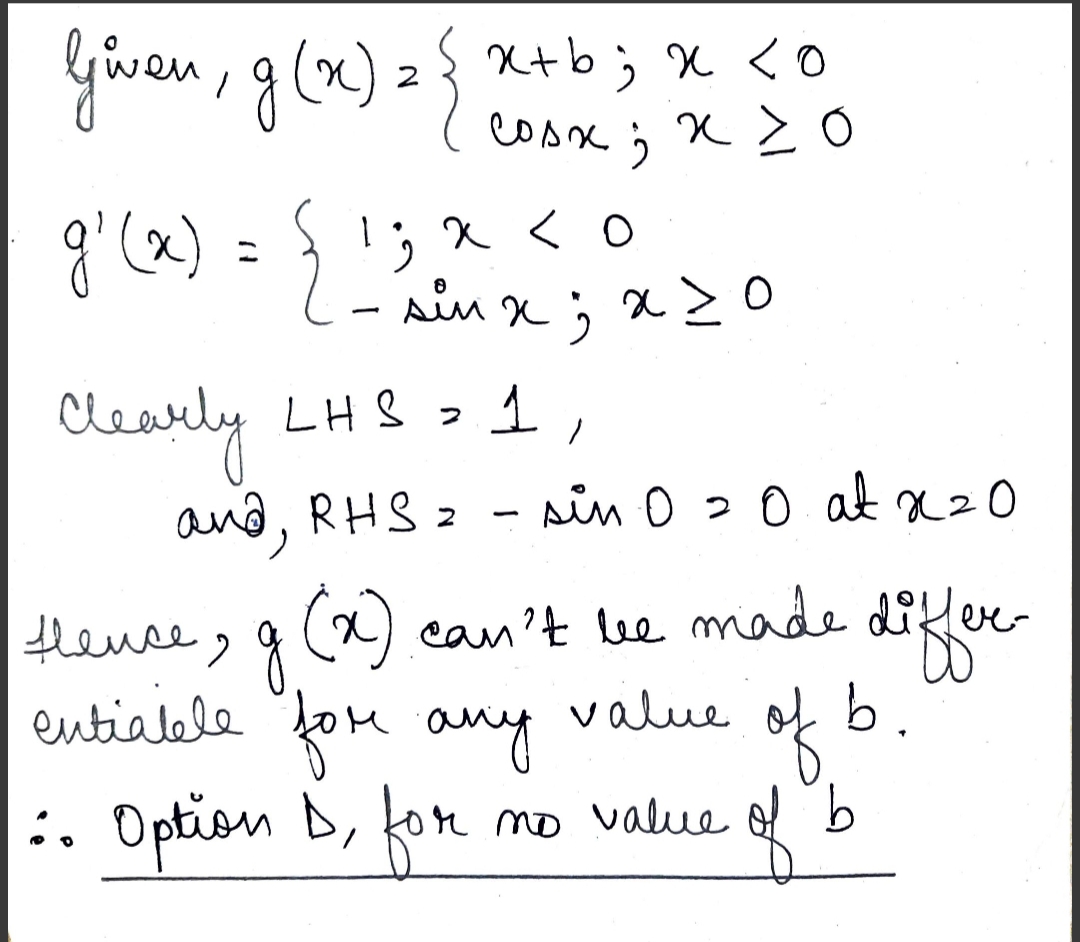 Given, g(x) = { x+b ; x < 0
cosx ; x ≥ 0
g'(x) = { 1 ; x < 0
- sin x ; x ≥ 0
Clearly LHS = 1 ,
and, RHS = - sin 0 = 0 at x=0
Hence, g(x) can't be made differ-
entiable for any value of b.
∴ Option D, for no value of b